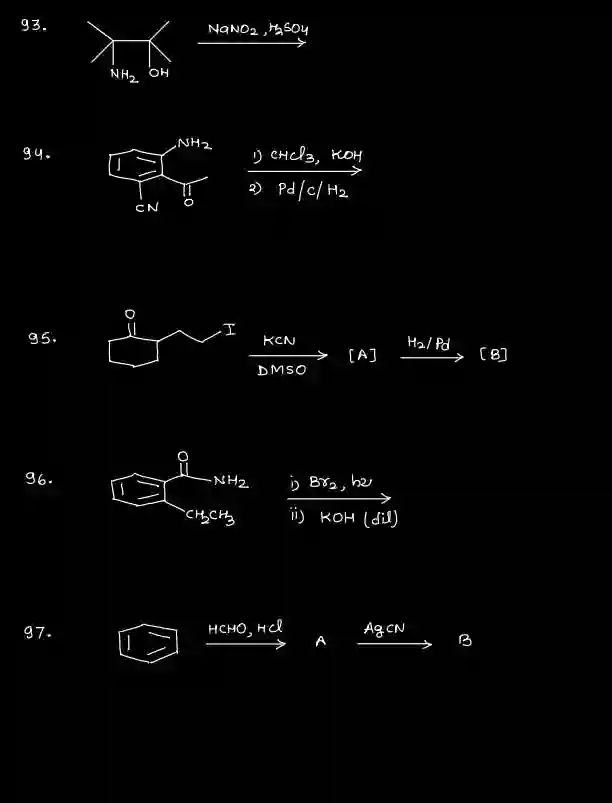 93.
NaNO2, H2SO4
NH2 OH
94.
NH2
i) CHCl3, KOH
2) Pd/C/H2
O
CN
95.
O
I
KCN
DMSO
[A]
H2/Pd
[B]
96.
O
NH2
CH2CH3
i) Br2, hν
ii) KOH (dil)
97.
HCHO, HCl
A
AgCN
B